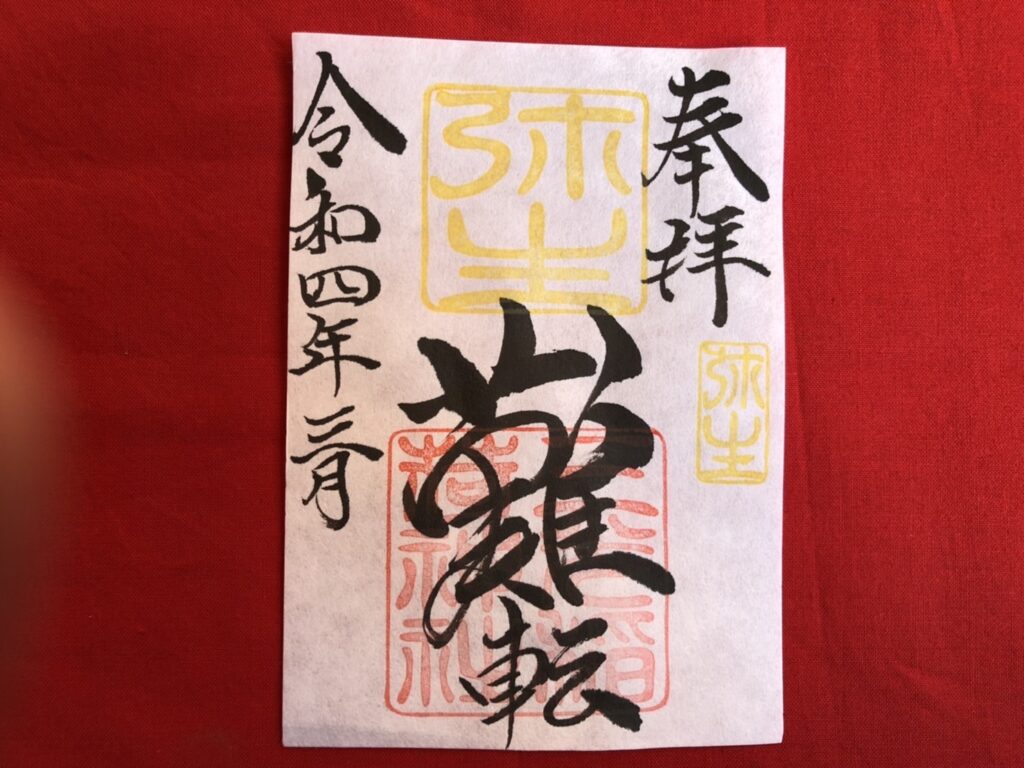 奉拝
弥生
弥生
難転
荷神社
令和四年三月